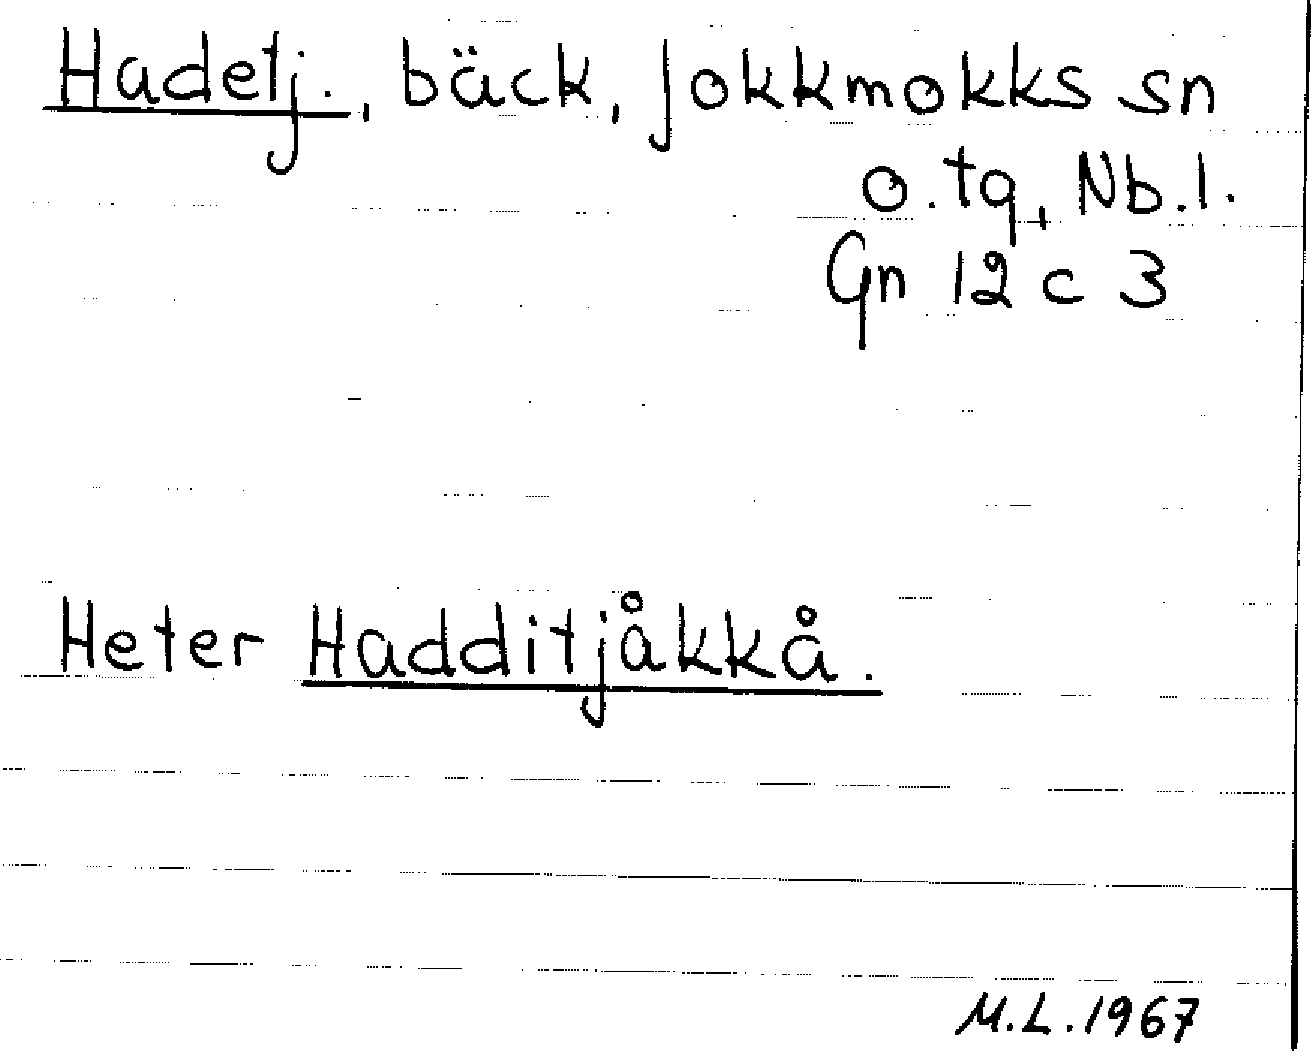 Hadetj., bäck, Jokkmokks sn
o. tg, Nb.l.
Gn 12 c 3
Heter Hadditjåkkå.
M.L. 1967